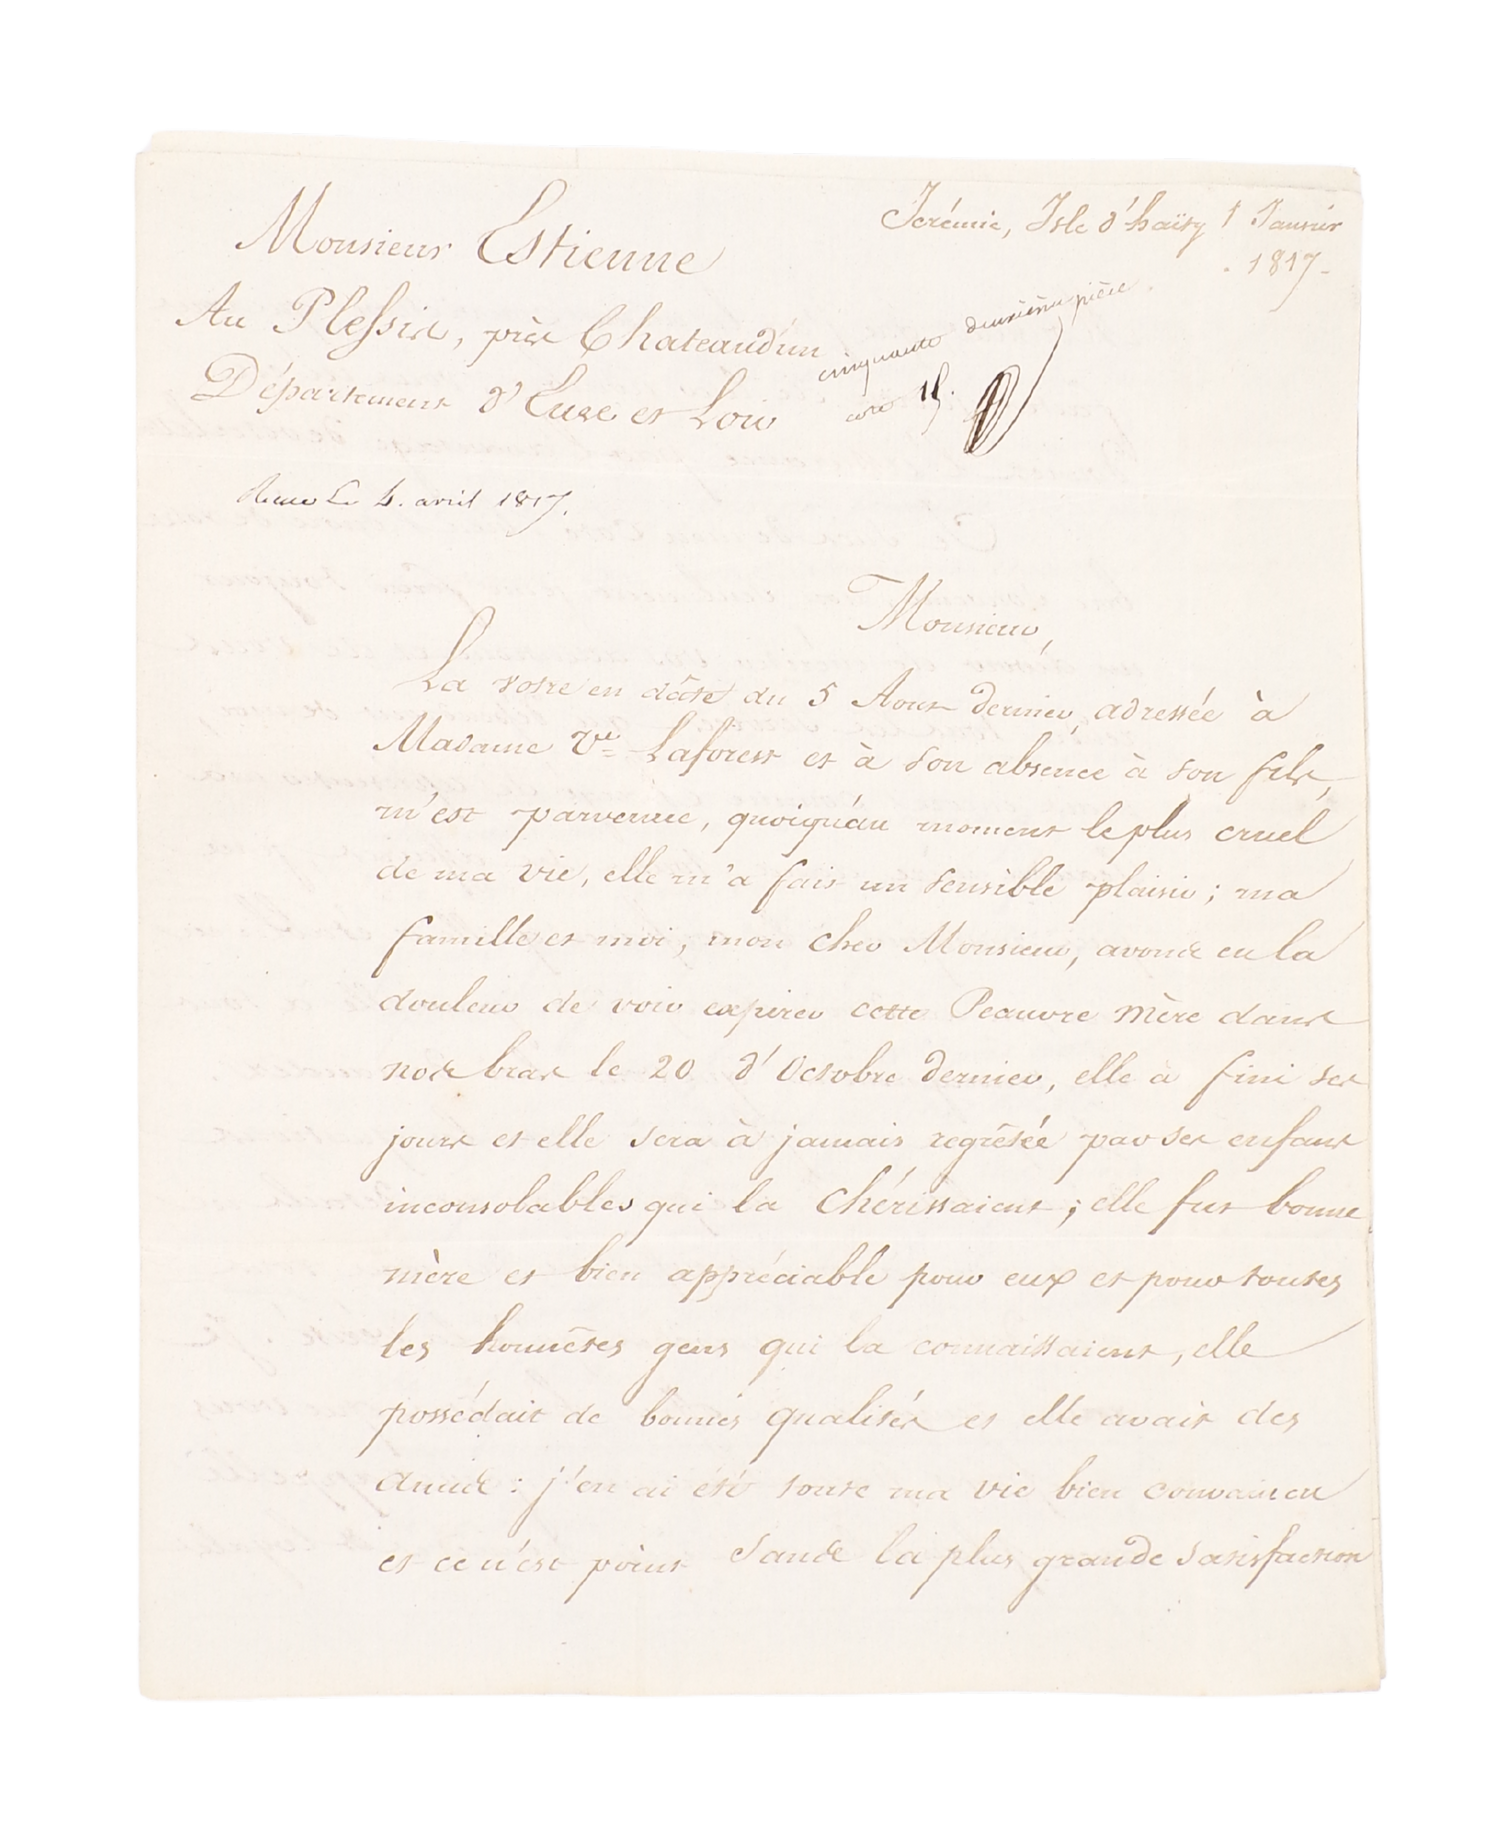 Jérémie, Isle d'haïty 1 Janvier
1817
Monsieur Estienne
Au Plessis, près Chateaudun
Département d'Eure et Loir
cinquante deuxième pièce
cote 15.
Recue Le 4. avril 1817.
Monsieur,
La votre en dâte du 5 Aout dernier, adressée à
Madame Ve Laforest et à son absence à son fils,
m'est parvenue, quoiqu'au moment le plus cruel
de ma vie, elle m'a fait un sensible plaisir; ma
famille et moi, mon cher Monsieur, avons eu la
douleur de voir expirer cette Peauvre mère dans
nos bras le 20 d'Octobre dernier, elle à fini ses
jours et elle sera à jamais regrêtée par ses enfans
inconsolables qui la chérissaient; elle fut bonne
mère et bien appréciable pour eux et pour toutes
les honnêtes gens qui la connaissaient, elle
possédait de bonnes qualités et elle avait des
amis: j'en ai été toute ma vie bien convaincu
et ce n'est point sans la plus grande satisfaction